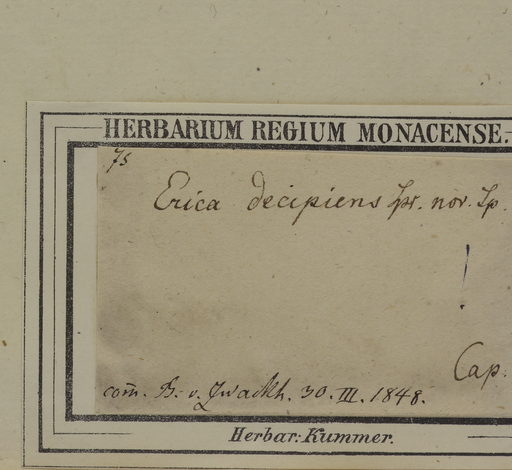 HERBARIUM REGIUM MONACENSE.
75
Erica decipiens Spr. nov. Sp.
!
Cap.
com̄. B. v. Zwackh. 30. III. 1848.
Herbar: Kummer.